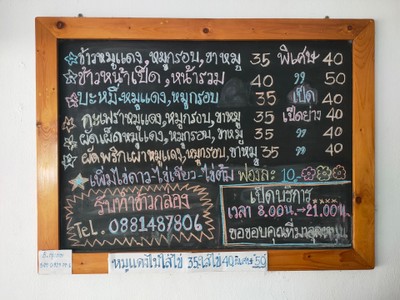 ข้าวหมูแดง,หมูกรอบ,ขาหมู 35 พิเศษ 40
ข้าวหน้าเป็ด,หน้ารวม 40 ,, 50
บะหมี่-หมูแดง,หมูกรอบ 35 เป็ด 40
กะเพราหมูแดง,หมูกรอบ,ขาหมู 35 เป็ดย่าง 40
ผัดเผ็ดหมูแดง,หมูกรอบ,ขาหมู 35 ,, 40
ผัดพริกเผาหมูแดง,หมูกรอบ,ขาหมู 35 ,, 40
เพิ่มไข่ดาว-ไข่เจียว-ไข่ต้ม ฟองละ 10.-
รับทำข้าวกล่อง
Tel. 0881487806
เปิดบริการ
เวลา 8.00น.-21.00น.
ขอขอบคุณที่มาอุดหนุน
หมูแดงไม่ใส่ไข่ 35 ใส่ไข่ 40 พิเศษ 50